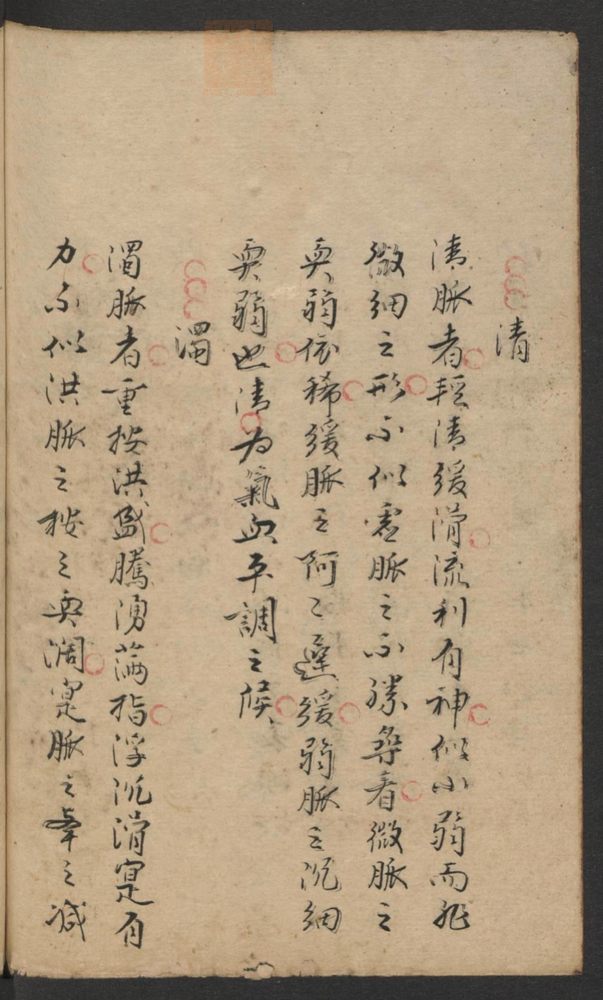 清
清脈者輕清緩滑流利有神似小弱而非
微細之形不似虛脈之不勝尋看微脈之
耎弱依稀緩脈之阿〻遲緩弱脈之沉細
耎弱也清為氣血平調之候
濁
濁脈者重按洪盛騰湧滿指浮沉滑寔有
力不似洪脈之按之耎濶寔脈之舉之減